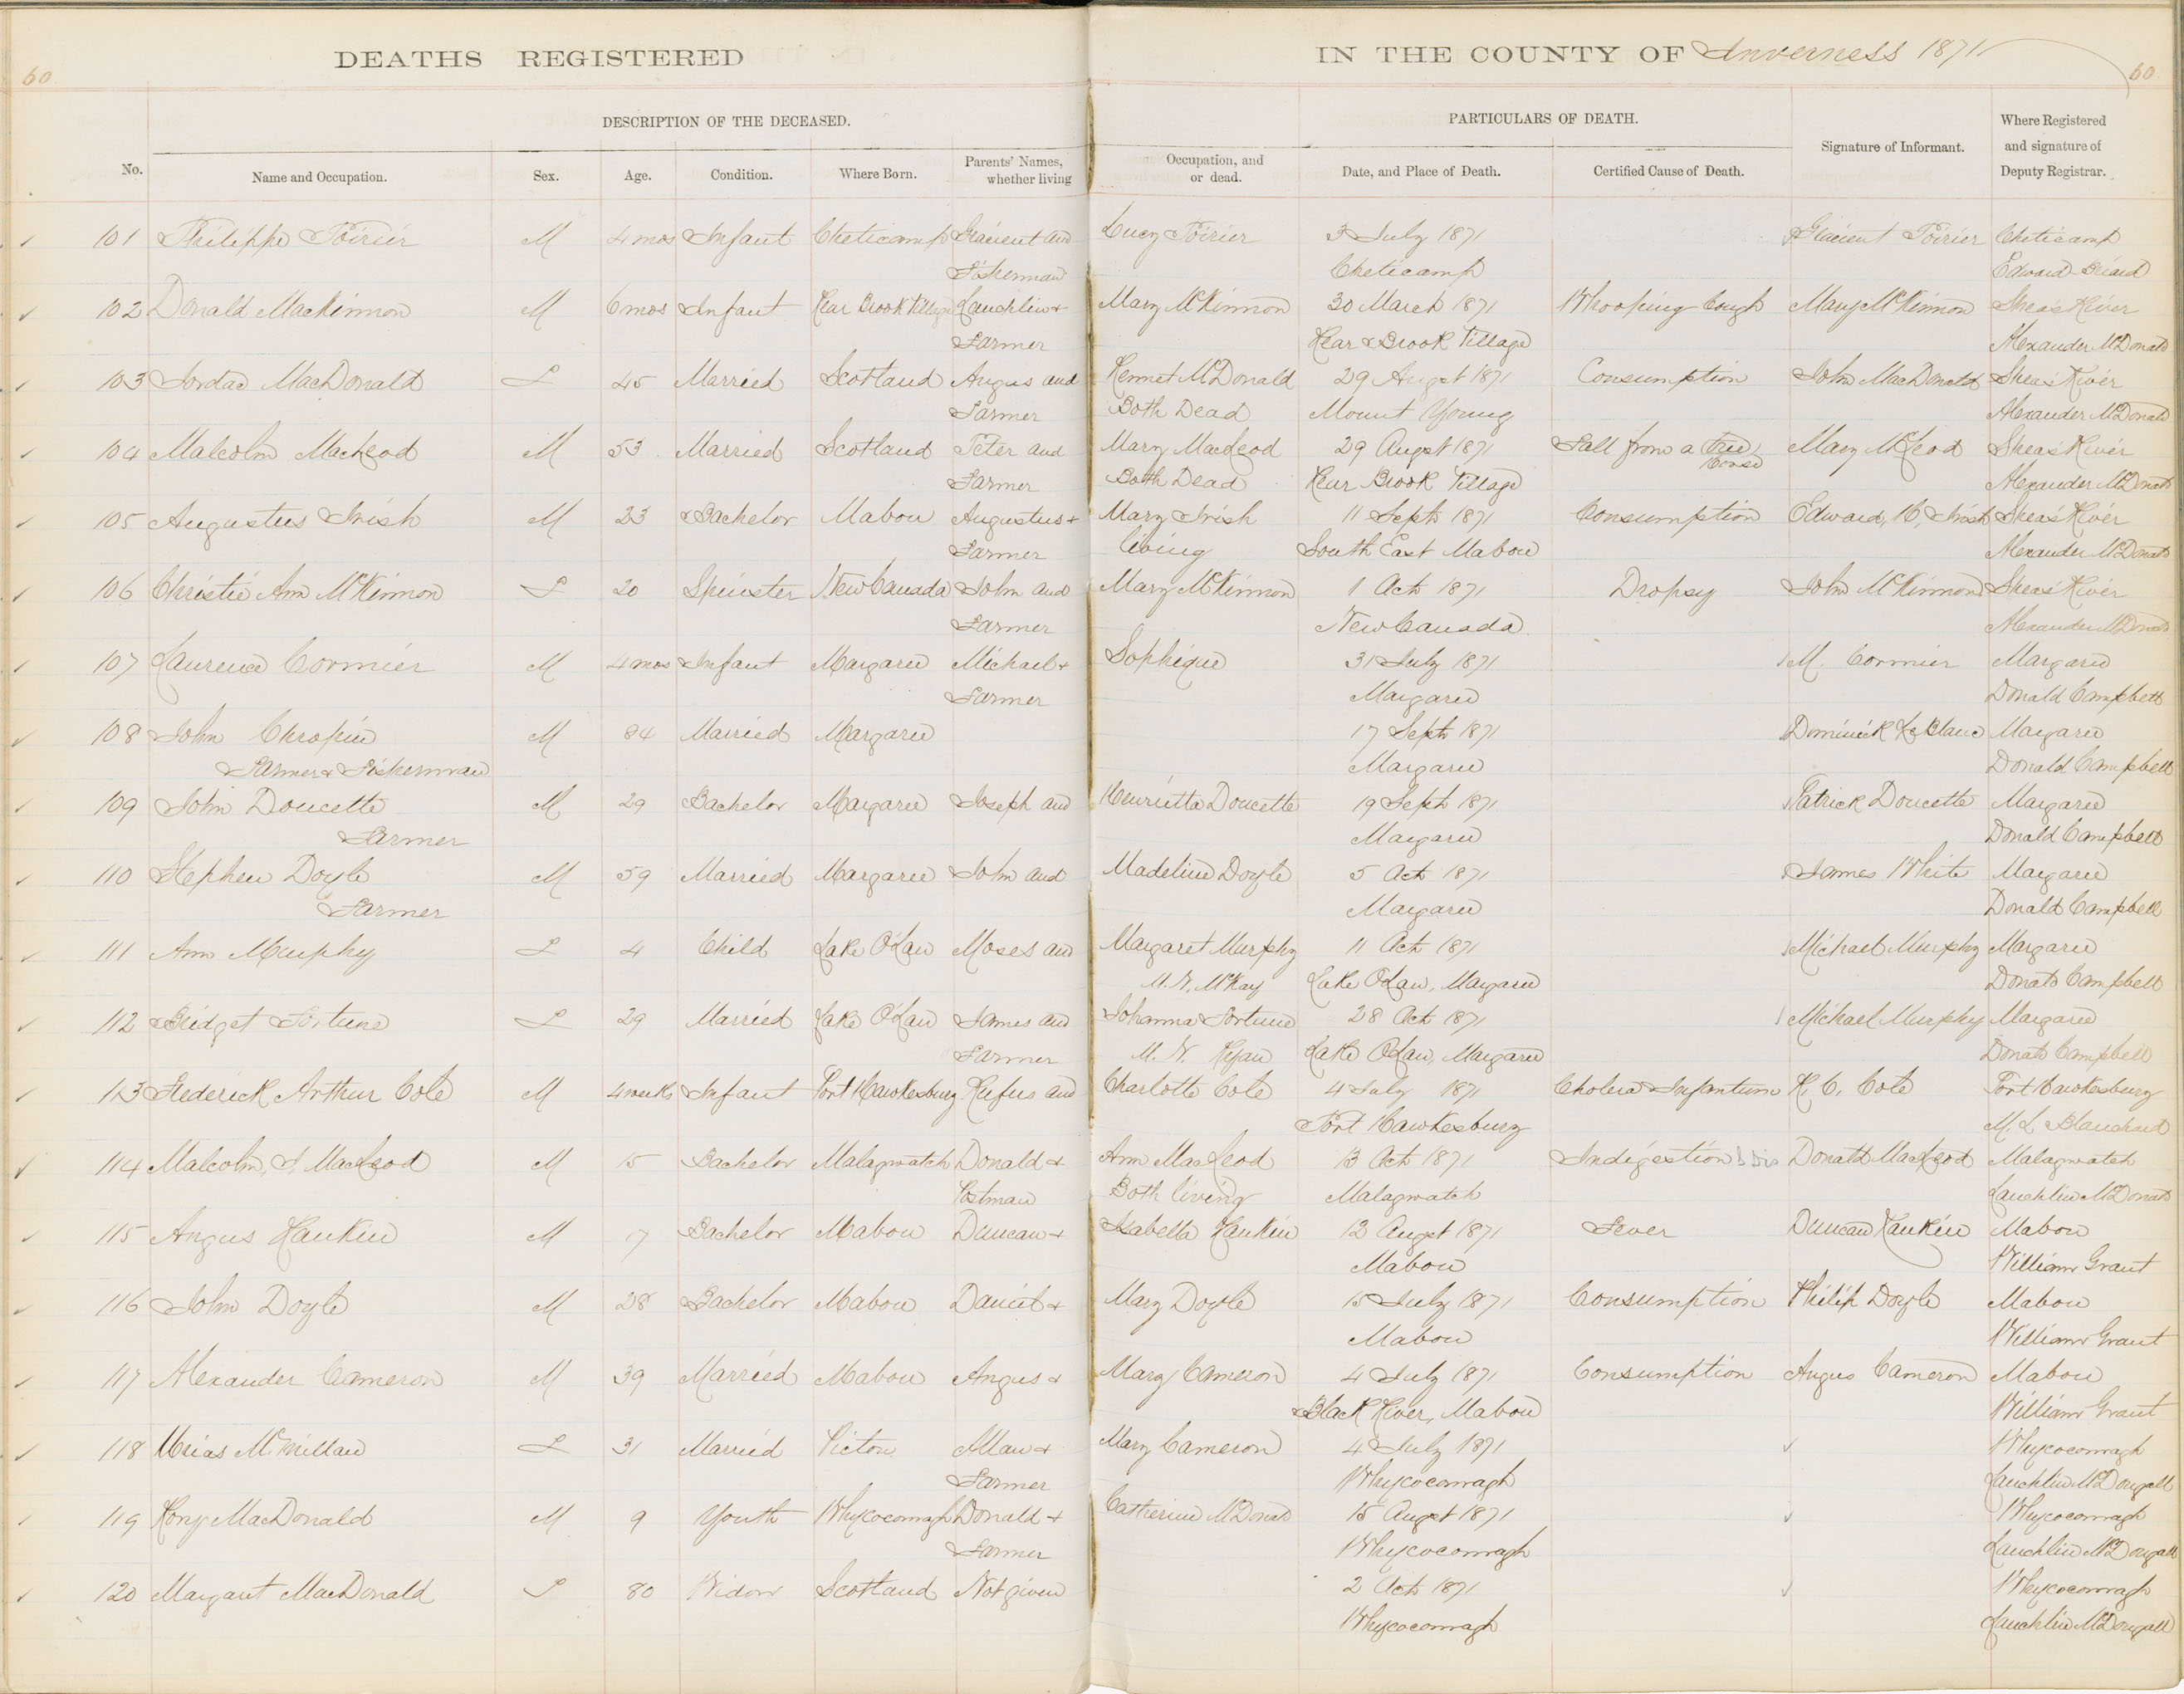 DEATHS REGISTERED IN THE COUNTY OF Inverness 1871
60 60
DESCRIPTION OF THE DECEASED. PARTICULARS OF DEATH.
No. Name and Occupation. Sex. Age. Condition. Where Born. Parents' Names, whether living Occupation, and or dead. Date, and Place of Death. Certified Cause of Death. Signature of Informant. Where Registered and signature of Deputy Registrar.
101 Philippe Poirier M 4 mos Infant Cheticamp and Lucy Poirier 3 July 1871 Poirier Cheticamp
Fisherman Cheticamp Edward Briard
102 Donald MacKinnon M 6 mos Infant Rear Brook Village Lauchlin + Mary McKinnon 30 March 1871 Whooping Cough Mary McKinnon Sheas River
Farmer Rear Brook Village Alexander McDonald
103 MacDonald F 45 Married Scotland Angus and Kennet McDonald 29 Augst 1871 Consumption John MacDonald Sheas River
Farmer Both Dead Mount Young Alexander McDonald
104 Malcolm MacLeod M 53 Married Scotland Peter and Mary MacLeod 29 Augst 1871 Fall from a tree, Mary McLeod Sheas River
Farmer Both Dead Rear Brook Village Alexander McDonald
105 Augustus Irish M 23 Bachelor Mabou Augustus + Mary Irish 11 Sept 1871 Consumption Edward, H, Irish Sheas River
Farmer living South East Mabou Alexander McDonald
106 Christie Ann McKinnon F 20 Spinster New Canada John and Mary McKinnon 1 Oct 1871 Dropsy John McKinnon Sheas River
Farmer New Canada Alexander McDonald
107 Laurence Cormier M 4 mos Infant Margaree Michael + Sophique 31 July 1871 M. Cormier Margaree
Farmer Margaree Donald Campbell
108 John Chropin M 84 Married Margaree 17 Sept 1871 Dominick LeBlanc Margaree
Farmer + Fisherman Margaree Donald Campbell
109 John Doucette M 29 Bachelor Margaree Joseph and Henrietta Doucette 19 Sept 1871 Patrick Doucette Margaree
Farmer Margaree Donald Campbell
110 Stephen Doyle M 59 Married Margaree John and Madeline Doyle 5 Oct 1871 James White Margaree
Farmer Margaree Donald Campbell
111 Ann Murphy F 4 Child Lake O'Law Moses and Margaret Murphy 11 Oct 1871 Michael Murphy Margaree
M. N. McKay Lake O'Law, Margaree Donald Campbell
112 Bridget Fortune F 29 Married Lake O'Law James and Johanna Fortune 28 Oct 1871 Michael Murphy Margaree
Farmer M. N. Ryan Lake O'Law, Margaree Donald Campbell
113 Frederick Arthur Cole M 4 weeks Infant Port Hawkesbury Rufus and Charlotte Cole 4 July 1871 Cholera Infantum R. C. Cole Port Hawkesbury
Port Hawkesbury M. L. Blanchard
114 Malcolm, J, MacLeod M 15 Bachelor Malagwatch Donald + Ann MacLeod 13 Oct 1871 Indigestion Donald MacLeod Malagwatch
Postman Both living Malagwatch Lauchlin McDonald
115 Angus Rankin M 17 Bachelor Mabou Duncan + Isabella Rankin 12 Augst 1871 Fever Duncan Rankin Mabou
Mabou William Grant
116 John Doyle M 28 Bachelor Mabou Daniel + Mary Doyle 15 July 1871 Consumption Philip Doyle Mabou
Mabou William Grant
117 Alexander Cameron M 39 Married Mabou Angus + Mary Cameron 4 July 1871 Consumption Angus Cameron Mabou
Black River, Mabou William Grant
118 Urias McMillan F 31 Married Pictou Allan + Mary Cameron 4 July 1871 Whycocomagh
Farmer Whycocomagh Lauchlin McDougall
119 Rory MacDonald M 9 Youth Whycocomagh Donald + Catherine McDonald 15 Augst 1871 Whycocomagh
Farmer Whycocomagh Lauchlin McDougall
120 Margaret MacDonald F 80 Widow Scotland Not given 2 Oct 1871 Whycocomagh
Whycocomagh Lauchlin McDougall